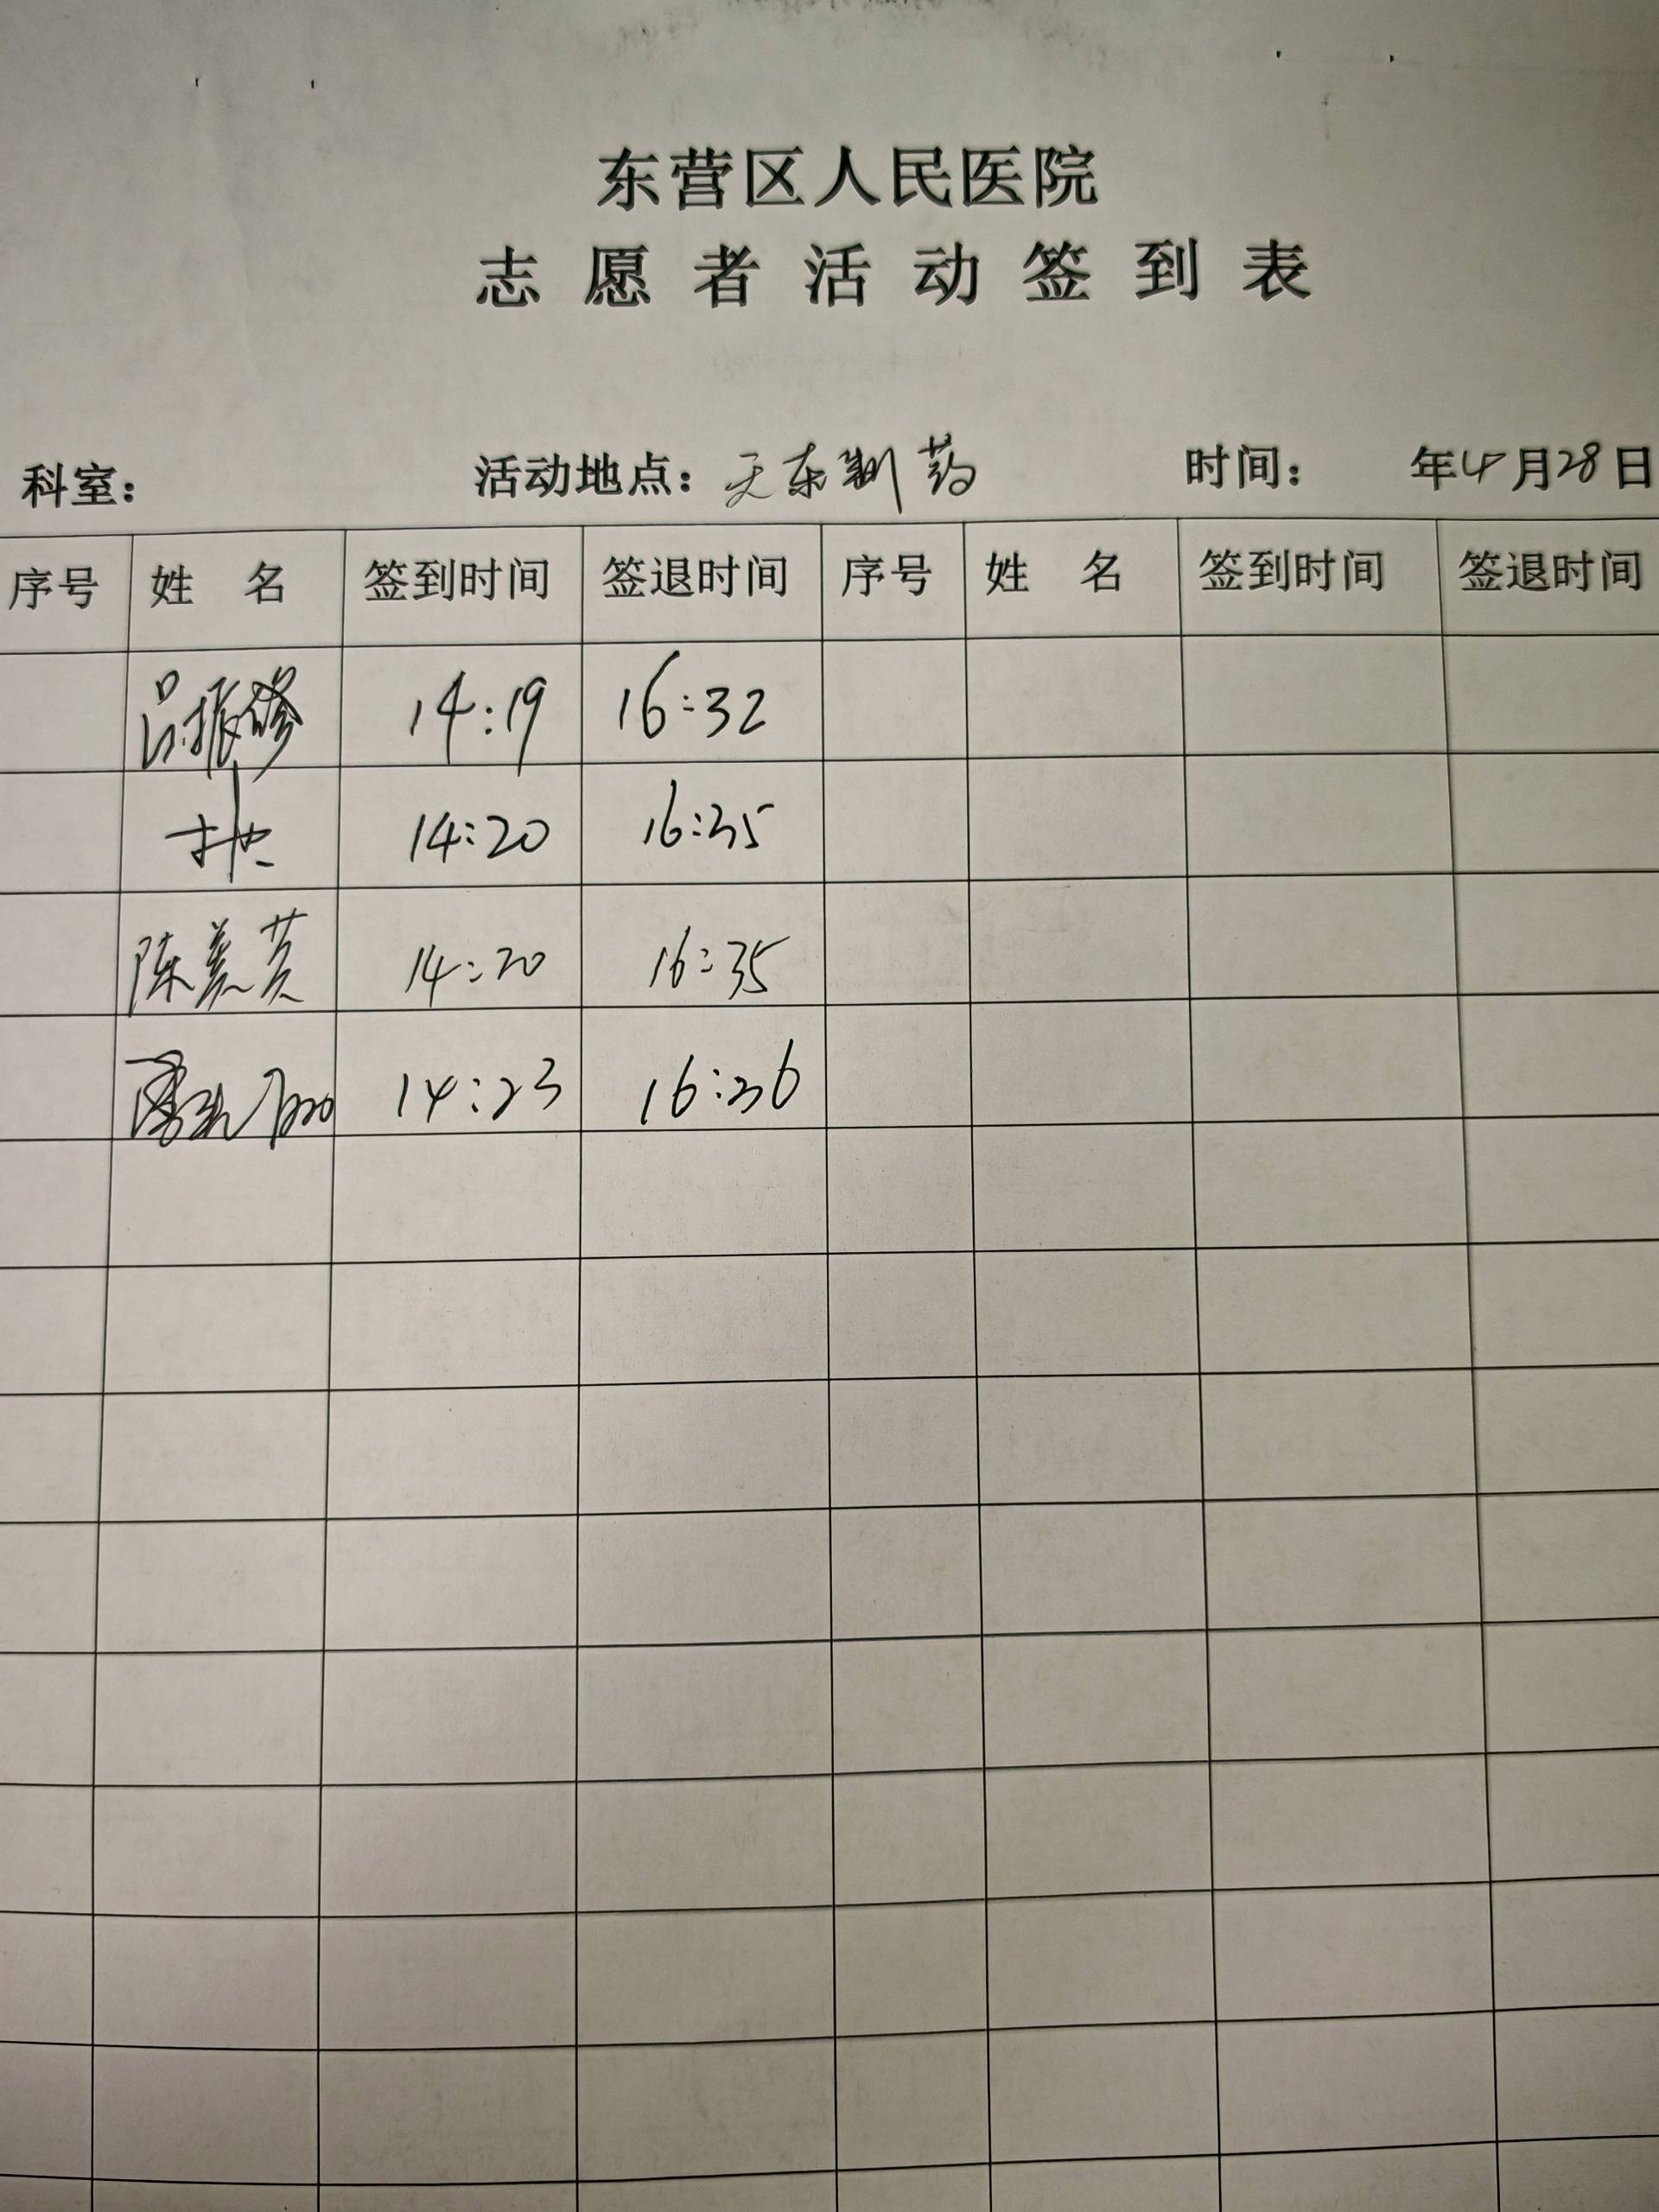 东营区人民医院
志愿者活动签到表
科室： 活动地点：天东制药 时间： 年4月28日
序号 姓名 签到时间 签退时间 序号 姓名 签到时间 签退时间
吕振 14:19 16:32
14:20 16:35
陈美英 14:20 16:35
14:23 16:36